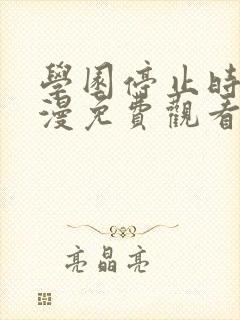 學園停止時
漫免費觀看
亮晶亮